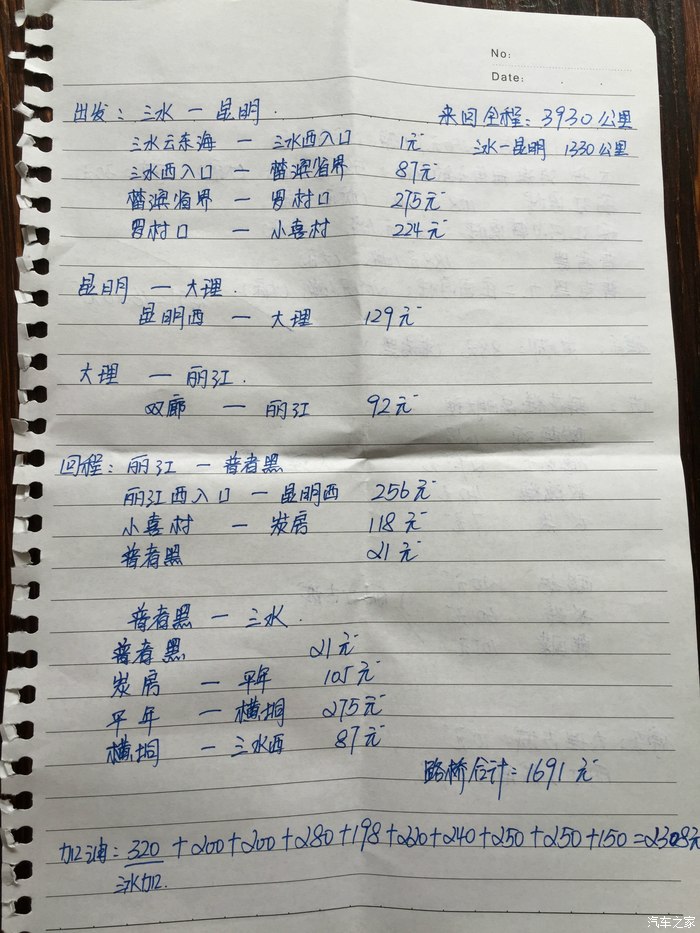 No:
Date:
出发：三水 — 昆明.
来回全程：3930公里
三水云东海 — 三水西入口 1元
三水—昆明 1330公里
三水西入口 — 蓝滨省界 87元
蓝滨省界 — 罗村口 275元
罗村口 — 小喜村 224元
昆明 — 大理.
昆明西 — 大理 129元
大理 — 丽江.
双廊 — 丽江 92元
回程：丽江 — 普者黑
丽江西入口 — 昆明西 256元
小喜村 — 炭房 118元
普者黑 21元
普者黑 — 三水.
普者黑 21元
炭房 — 平年 105元
平年 — 横垌 275元
横垌 — 三水西 87元
路桥合计：1691元
加油：320+200+200+280+198+220+240+250+250+150=2308元
三水加.
汽车之家